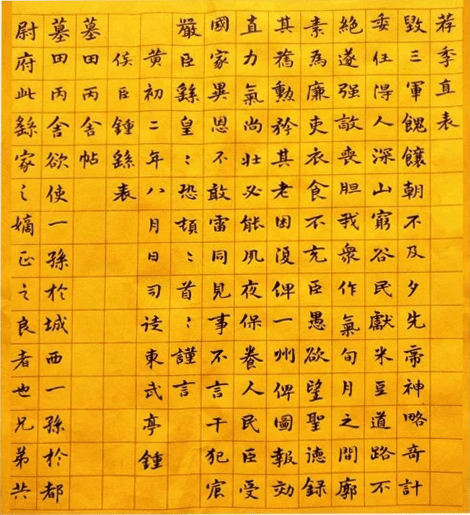 荐季直表
毀三軍餽饟朝不及夕先帝神略奇計
委任得人深山窮谷民獻米豆道路不
絶遂强敵喪胆我衆作氣旬月之間廓
素為廉吏衣食不充臣愚欲望聖德録
其舊勲矜其老困復俾一州俾圖報効
直力氣尚壯必能夙夜保養人民臣受
國家異恩不敢雷同見事不言干犯宸
嚴臣繇皇〻恐頓〻首〻謹言
黄初二年八月日司徒東武亭鍾
侯臣鍾繇表
墓田丙舍帖
墓田丙舍欲使一孫於城西一孫於都
尉府此繇家之嫡正之良者也兄弟共